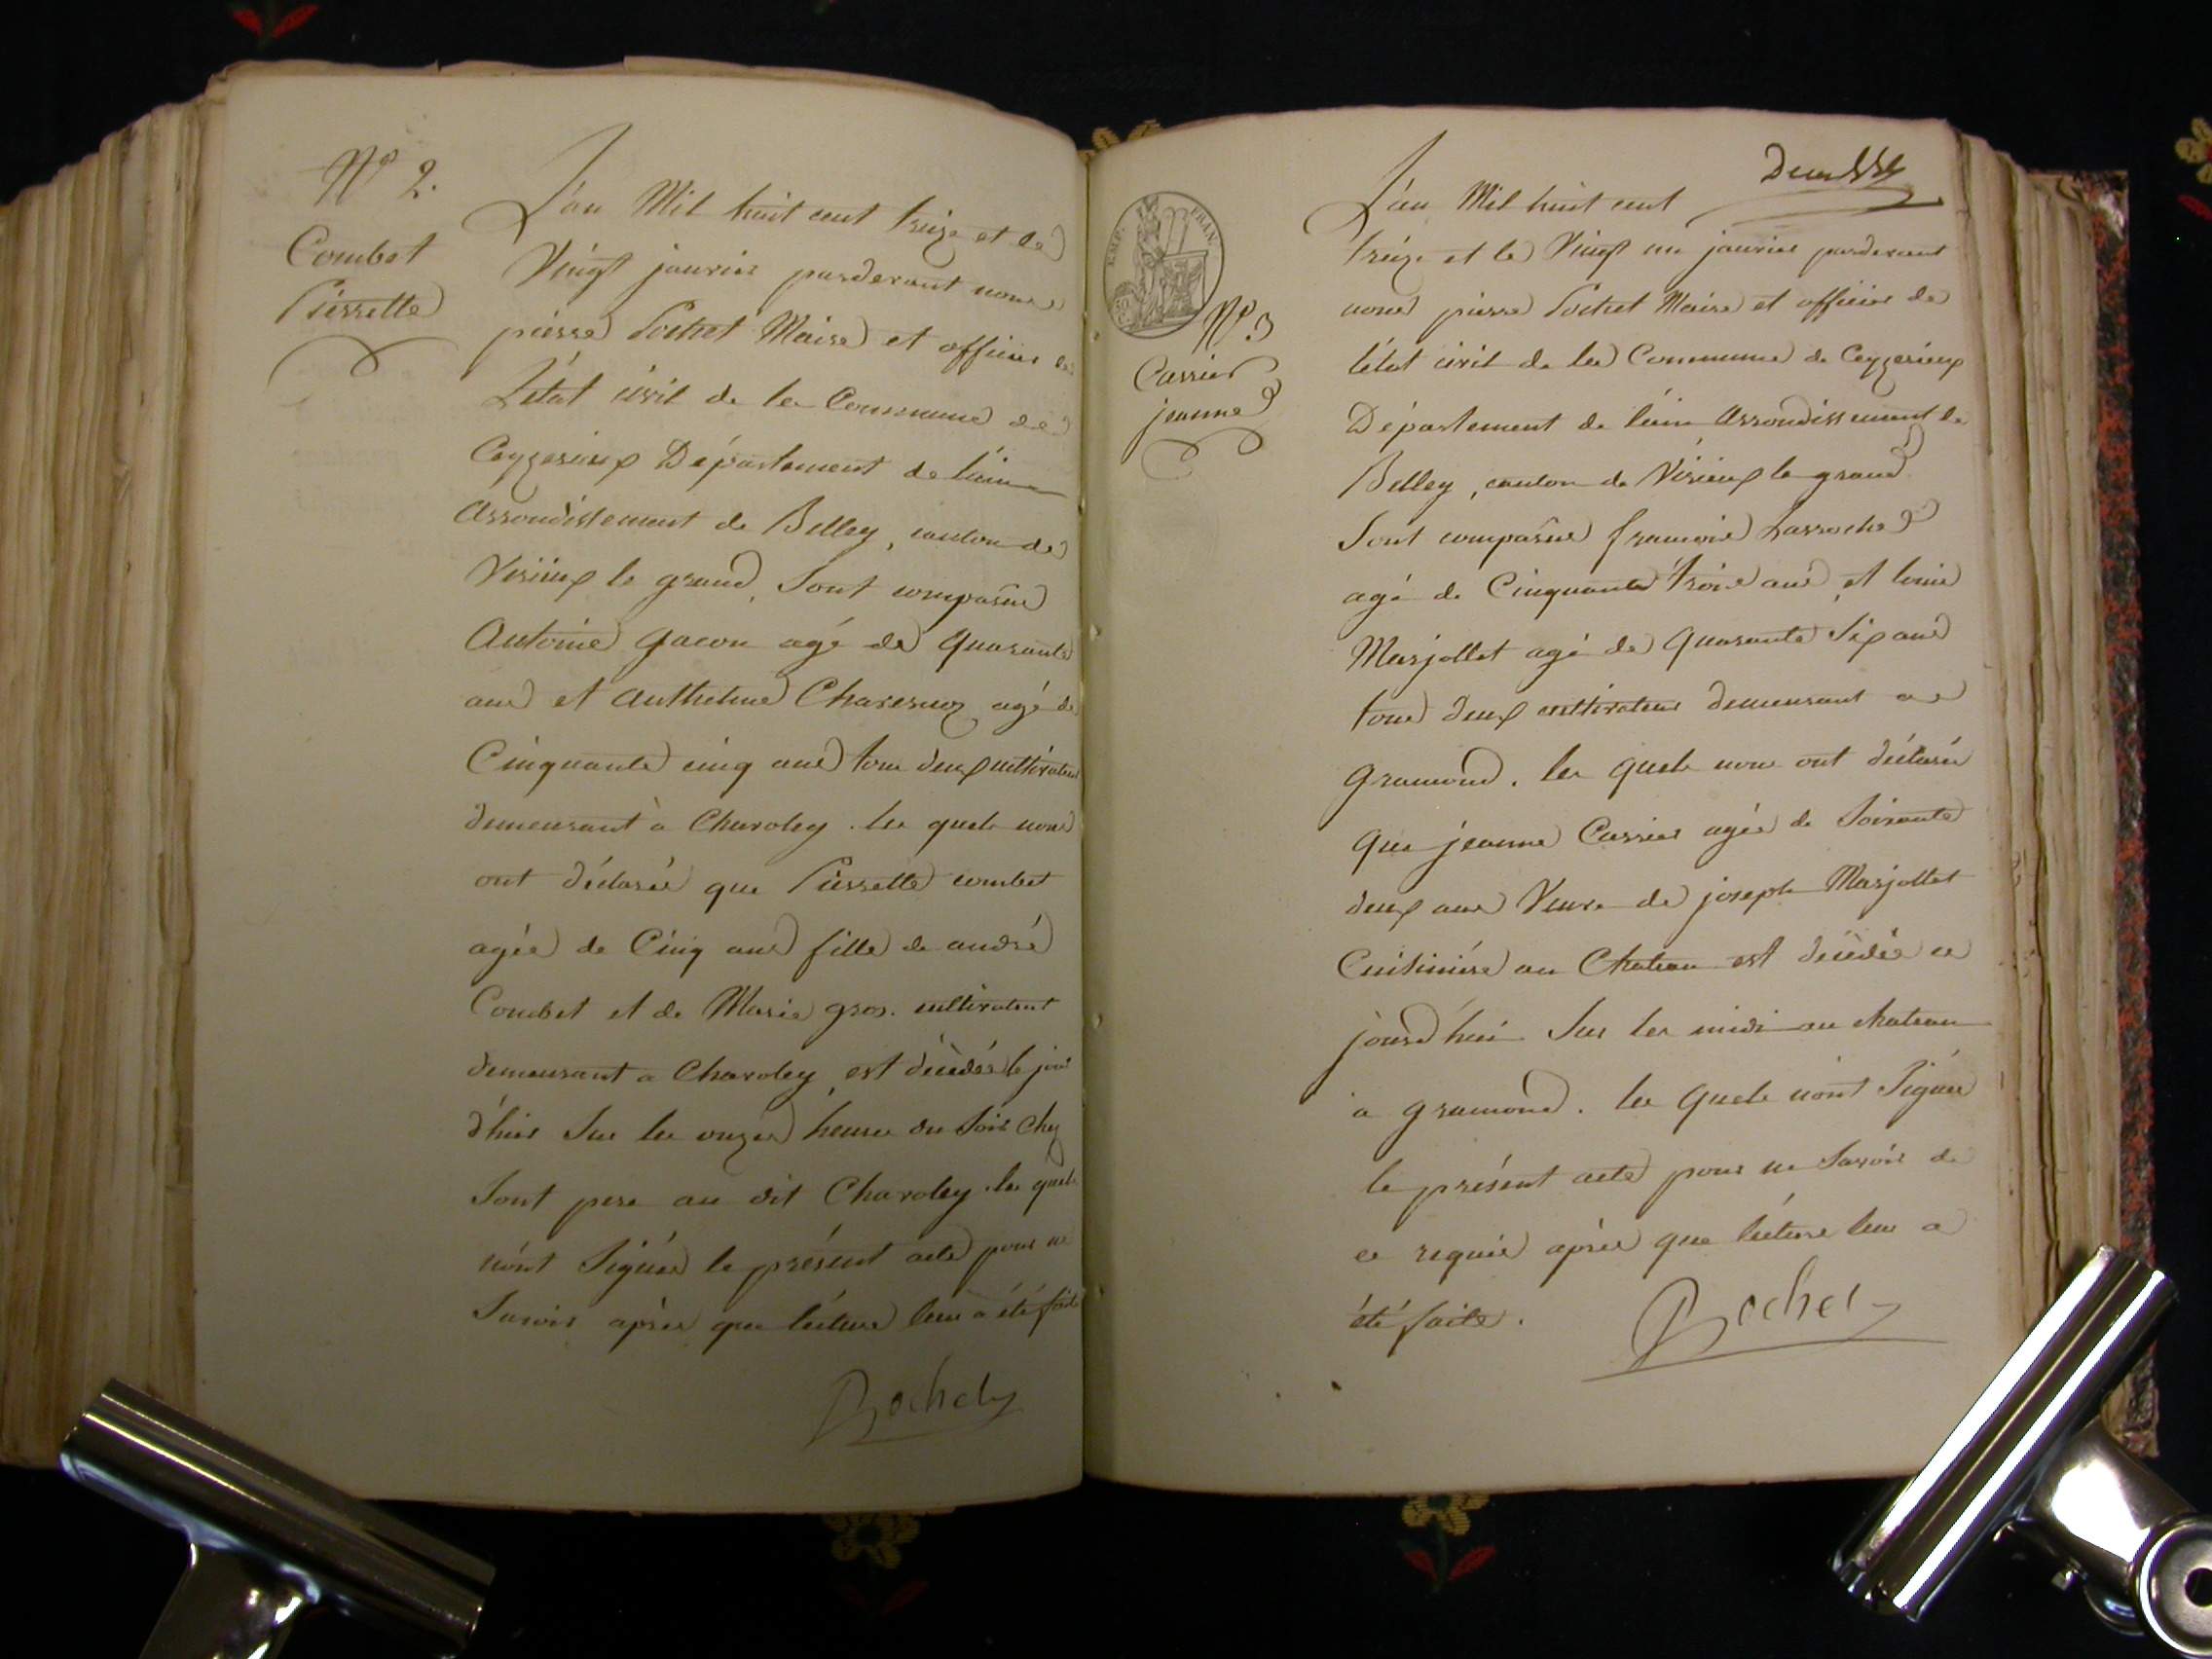 Nº 2.
Combet
Pierrette
L'an Mil huit cent treize et le
Vingt janvier pardevant nous
pierre Pochet Maire et officier de
L'état civil de la Commune de
Ceyzerieux Département de l'ain
Arrondissement de Belley, canton de
Virieux le grand, Sont comparus
Antoine gacon agé de quarante
ans et Anthelme Charesnoz agé de
Cinquante cinq ans tous deux cultivateurs
demeurant à Chavoley. les quels nous
ont déclarés que Pierrette combet
agée de Cinq ans fille de andré
Combet et de Marie gros. cultivateurs
demeurant a Chavoley, est décédés le jour
d'hier Sur les onzes heures du Soir Chez
Sont pere au dit Chavoley. les quels
n'ont Signés le présent acte pour ne
Savoir après que lécture leur a été faite
Pochet
EMP. FRAN.
Nº 3
Carrier
jeanne
L'an Mil huit cent
treize et le Vingt un janvier pardevant
nous pierre Pochet Maire et officier de
l'état civil de la Commune de Ceyzerieux
Département de l'ain Arrondissement de
Belley, canton de Virieux le grand
Sont comparus françois Larroche
agé de Cinquante trois ans, et louis
Marjollet agé de quarante Six ans
tous deux cultivateurs demeurant a
gramond. les quels nous ont déclarés
que jeanne Carrier agée de Soixante
deux ans Veuve de joseph Marjollet
Cuisinière au Chateau est décédée ce
jourd'hui Sur les midi au chateau
a gramond. les quels n'ont Signés
le présent acte pour ne Savoir de
ce requis après que lécture leur a
été faite. Pochet